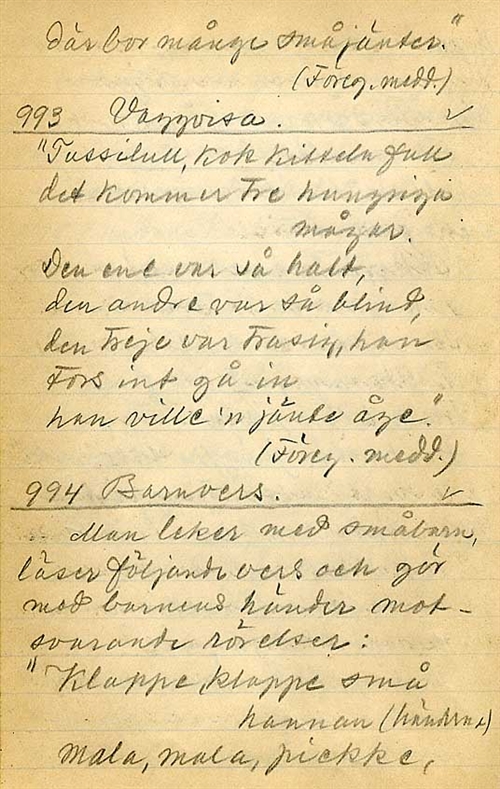 där bor många småjänter."
(Föreg. medd.)
993 Vaggvisa. ✓
"Tussilull, kok kitteln full
det kommer tre hungriga
mågar.
Den ene var så halt,
den andre var så blind,
den treje var trasig, han
törs int gå in
han ville 'n jänte äge."
(Föreg. medd.)
994 Barnvers. ✓
Man leker med småbarn,
läser följande vers och gör
med barnens händer mot-
svarande rörelser:
"Klappe, klappe små
hannan (händerna)
Mala, mala, pickke,